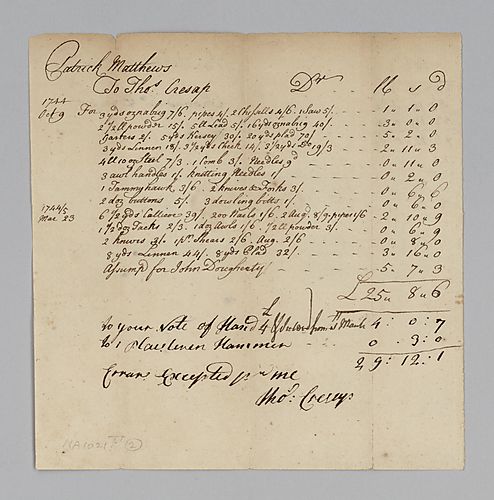 Patrick Matthews
To Thos. Cresap Dr lb s d
1744
Oct 9 For 3 yds oznabrig 7/6, pipes 4/. 2 Chissells 4/6 1 saw 5/. 1 " 1 " 0
2 1/2 ll powder 15/. 5 ll lead 5/. 16 yds oznabrig 40/ 3 " 0 " 0
Garters 2/. 5 yds Kersey 30/. 20 yds plad 70/ 5 " 2 " 0
3 yds Linnen 18/. 3 1/2 yds Check 14/. 5 1/2 yds Do 19/3 2 " 11 " 3
4 ll 10 oz Steel 7/3 1 Comb 3/. Needles 9d 0 " 11 " 0
3 awl handles 1/. knitting Needles 1/ 0 " 2 " 0
1 Tammyhawk 3/6 2 knives & Forks 3/. 0 " 6 " 6
2 doz buttons 5/. 3 dowling botts 1/ 0 " 6 " 0
1744/5
Mar 23 6 1/2 yds Callicoe 39/. 200 Nails 1/6 2 Aug. 8/9 pipes 1/6 2 " 10 " 9
1 1/2 doz Tacks 2/3. 1 doz Awls 1/6. 1/2 ll powder 3/. 0 " 6 " 9
2 knives 3/. 1 pr. Shears 2/6 Aug. 2/6 0 " 8 " 0
8 yds Linnen 44/ 8 yds Plad 32/. 3 " 16 " 0
Assump for John Dougherty 5 " 7 " 3
£ 25 " 8 " 6
to your Note of Hand 4 £ from March 4 : 0 : 7
to 1 Hammer 0 : 3 : 0
29 : 12 : 1
Errors Excepted pr me
Thos. Cresap
MA1021 (2)